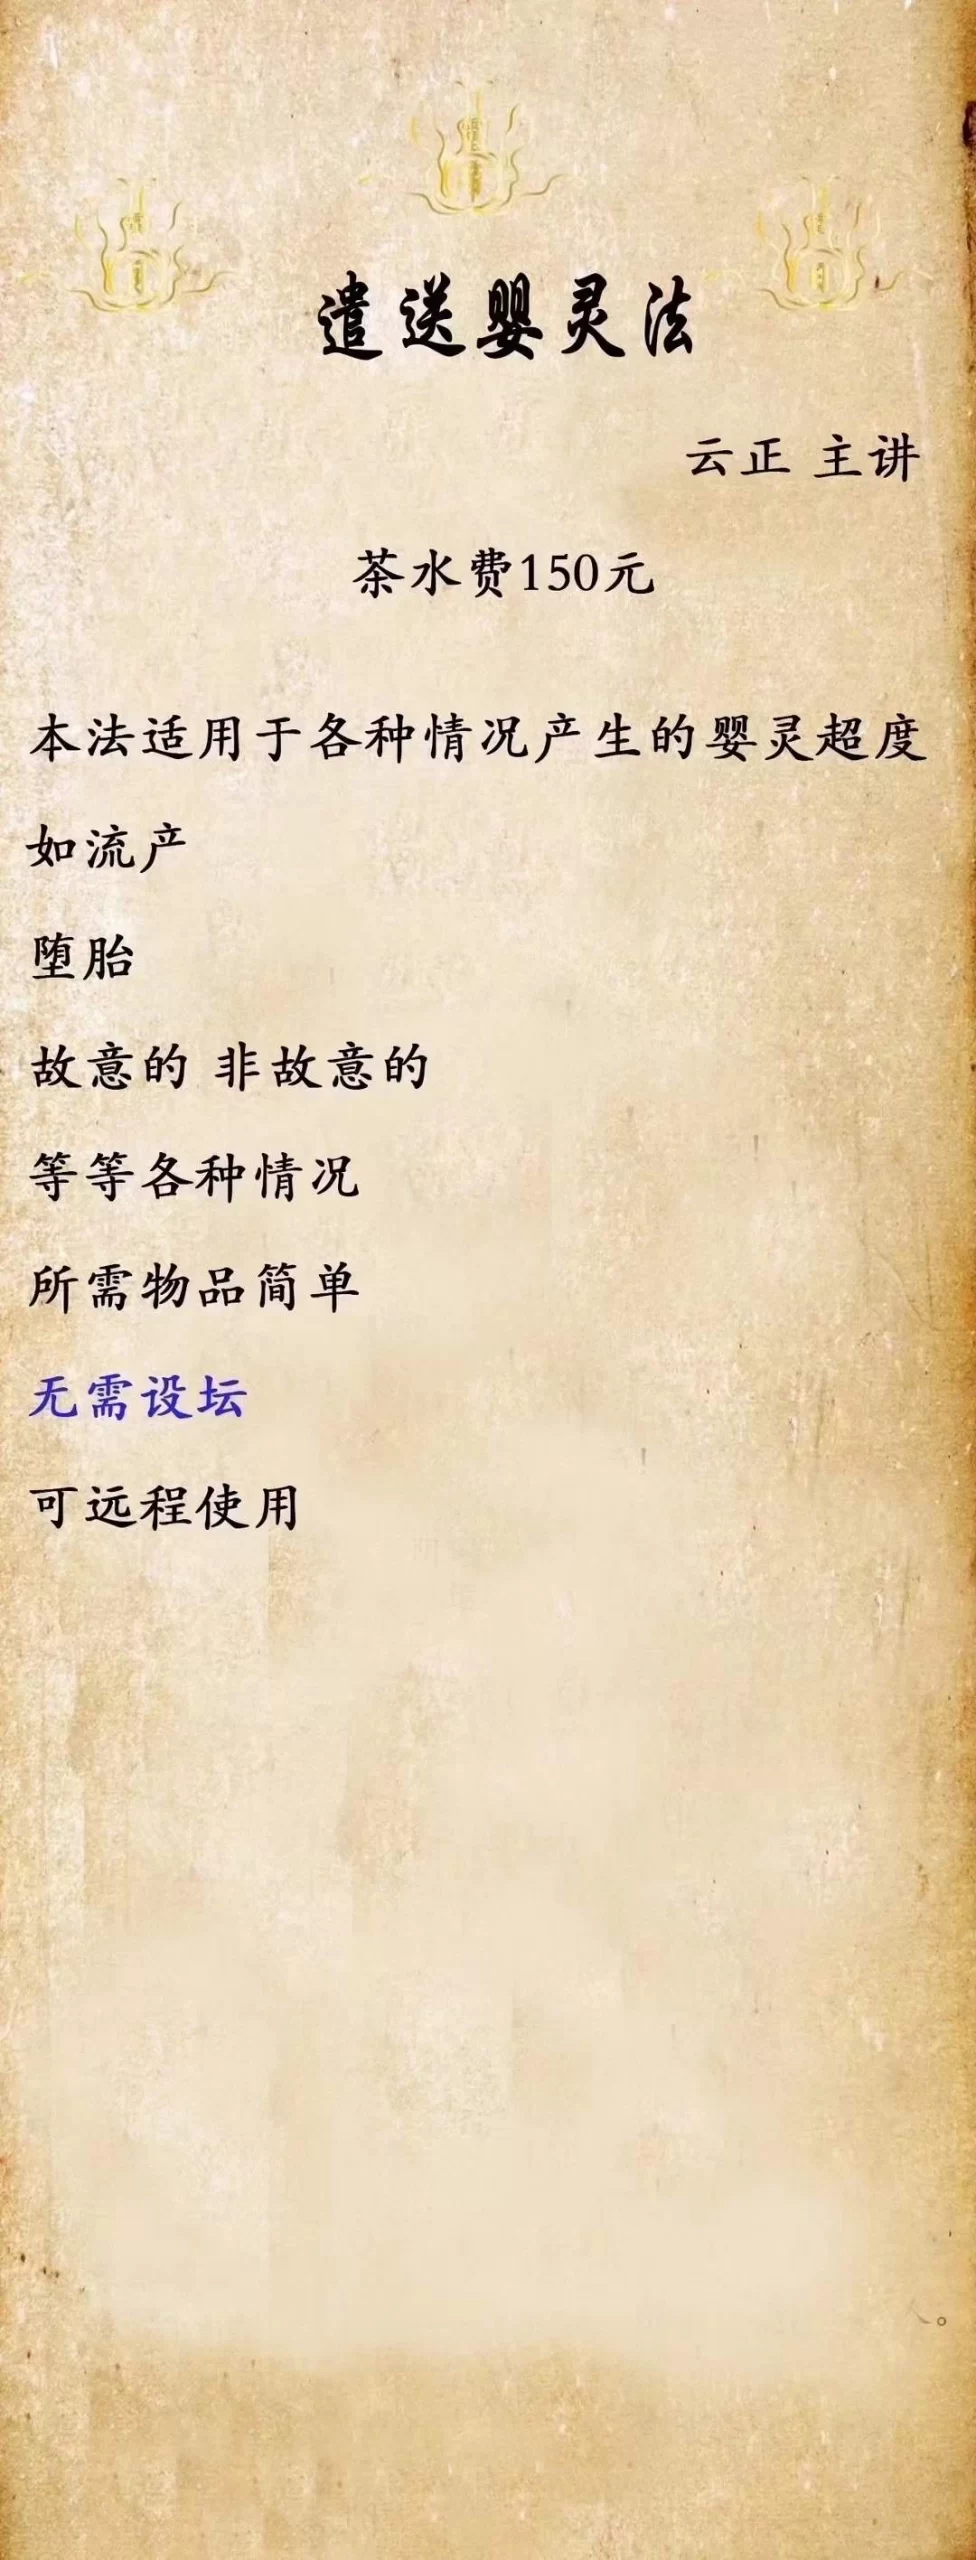 遣送婴灵法
云正 主讲
茶水费150元
本法适用于各种情况产生的婴灵超度
如流产
堕胎
故意的 非故意的
等等各种情况
所需物品简单
无需设坛
可远程使用